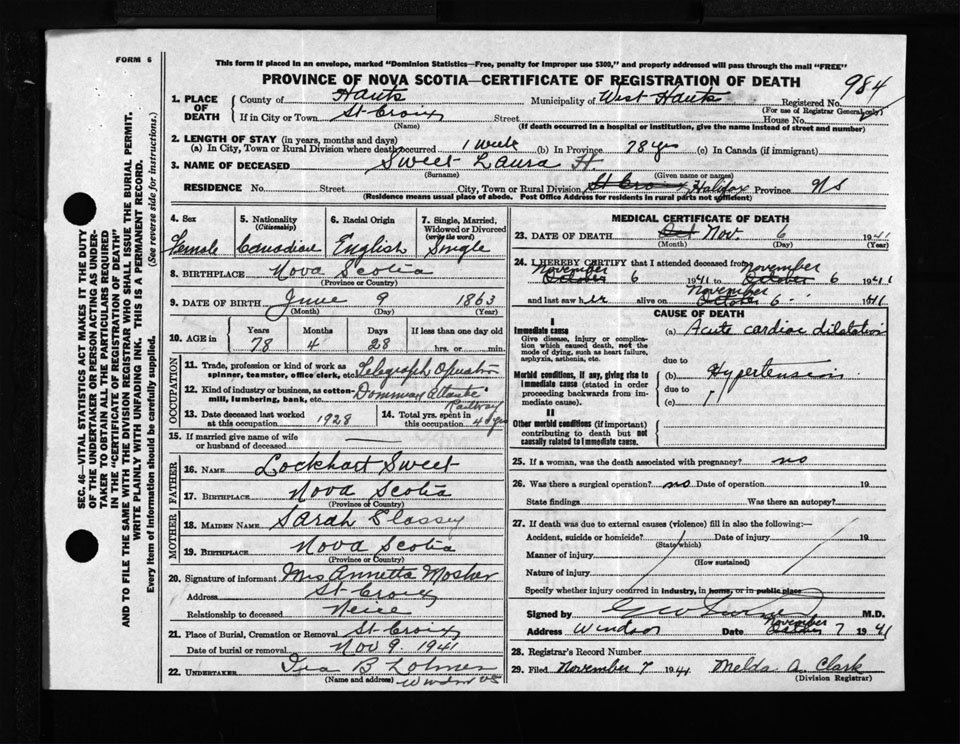 FORM 6
This form if placed in an envelope, marked "Dominion Statistics—Free, penalty for improper use $300," and properly addressed will pass through the mail "FREE"
PROVINCE OF NOVA SCOTIA—CERTIFICATE OF REGISTRATION OF DEATH
984
1. PLACE OF DEATH
County of Hants Municipality of West Hants Registered No.
(For use of Registrar General only)
If in City or Town St Croix Street House No.
(Name) (If death occurred in a hospital or institution, give the name instead of street and number)
2. LENGTH OF STAY (in years, months and days)
(a) In City, Town or Rural Division where death occurred 1 Week (b) In Province 78 yrs (c) In Canada (if immigrant)
3. NAME OF DECEASED Sweet Laura H.
(Surname) (Given name or names)
RESIDENCE No. Street City, Town or Rural Division St Croix Halifax Province N S
(Residence means usual place of abode. Post Office Address for residents in rural parts not sufficient)
4. Sex
Female
5. Nationality
(Citizenship)
Canadian
6. Racial Origin
English
7. Single, Married, Widowed or Divorced
(write the word)
Single
8. BIRTHPLACE Nova Scotia
(Province or Country)
9. DATE OF BIRTH June 9 1863
(Month) (Day) (Year)
10. AGE in
Years Months Days If less than one day old
78 4 28 hrs. or min.
OCCUPATION
11. Trade, profession or kind of work as spinner, teamster, office clerk, etc. Telegraph Operator
12. Kind of industry or business, as cotton-mill, lumbering, bank, etc. Dominion Atlantic Railway
13. Date deceased last worked at this occupation 1928
14. Total yrs. spent in this occupation
15. If married give name of wife or husband of deceased
FATHER
16. NAME Lockhart Sweet
17. BIRTHPLACE Nova Scotia
(Province or Country)
MOTHER
18. MAIDEN NAME Sarah
19. BIRTHPLACE Nova Scotia
(Province or Country)
20. Signature of informant Mrs Annetta Mosher
Address St Croix
Relationship to deceased Neice
21. Place of Burial, Cremation or Removal St Croix
Date of burial or removal Nov 9 1941
22. UNDERTAKER Ira B
(Name and address) Windsor
MEDICAL CERTIFICATE OF DEATH
23. DATE OF DEATH Oct Nov. 6 1941
(Month) (Day) (Year)
24. I HEREBY CERTIFY that I attended deceased from
November November
October 6 1941 to October 6 1941
November
and last saw her alive on October 6 1941
CAUSE OF DEATH
I
Immediate cause
Give disease, injury or complication which caused death, not the mode of dying, such as heart failure, asphyxia, asthenia, etc.
(a) Acute cardiac dilatation
due to
Morbid conditions, if any, giving rise to immediate cause (stated in order proceeding backwards from immediate cause).
(b) Hypertension
due to
(c)
II
Other morbid conditions (if important) contributing to death but not causally related to immediate cause.
25. If a woman, was the death associated with pregnancy? no
26. Was there a surgical operation? no Date of operation 19
State findings Was there an autopsy?
27. If death was due to external causes (violence) fill in also the following:—
Accident, suicide or homicide? Date of injury 19
(State which)
Manner of injury
(How sustained)
Nature of injury
Specify whether injury occurred in industry, in home, or in public place
Signed by M.D.
November
Address Windsor Date October 7 1941
28. Registrar's Record Number
29. Filed November 7 1941 Melda A. Clark
(Division Registrar)
SEC. 46—VITAL STATISTICS ACT MAKES IT THE DUTY
OF THE UNDERTAKER OR PERSON ACTING AS UNDER-
TAKER TO OBTAIN ALL THE PARTICULARS REQUIRED
IN THE "CERTIFICATE OF REGISTRATION OF DEATH"
AND TO FILE THE SAME WITH THE DIVISION REGISTRAR WHO SHALL ISSUE THE BURIAL PERMIT.
WRITE PLAINLY WITH UNFADING INK. THIS IS A PERMANENT RECORD.
Every item of Information should be carefully supplied. (See reverse side for instructions.)